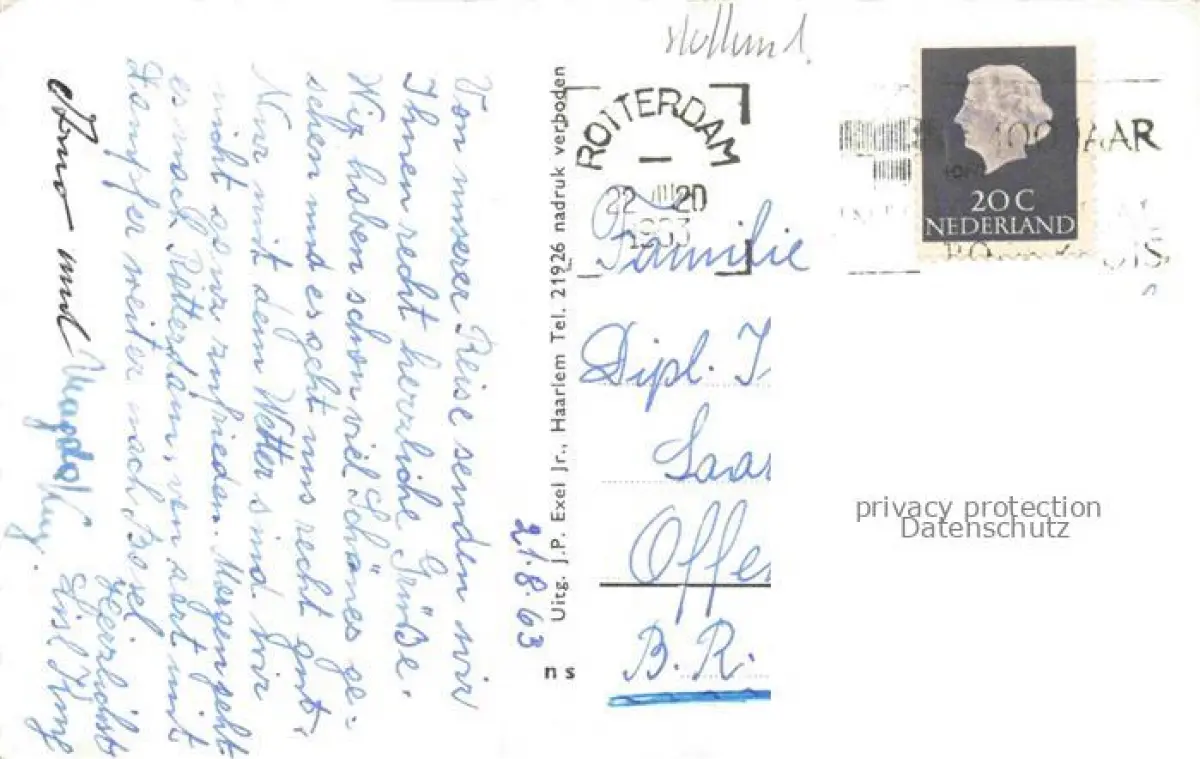 Holland
Von unserer Reise senden wir
Ihnen recht herrliche Grüße.
Wir haben schon viel Schönes ge-
sehen und es geht uns recht gut.
Nur mit dem Wetter sind wir
nicht so zufrieden. Morgen geht
es nach Rotterdam, von dort mit
Dampfer weiter nach Basel
Herzlichst
Anno und Magda
21.8.63
Uitg. J.P. Exel Jr., Haarlem Tel. 21926 nadruk verboden
n s
ROTTERDAM
22 VIII 20
1963
100 JAAR
20 C
NEDERLAND
Familie
Dipl. I
Saar
Offe
B.R.
privacy protection
Datenschutz